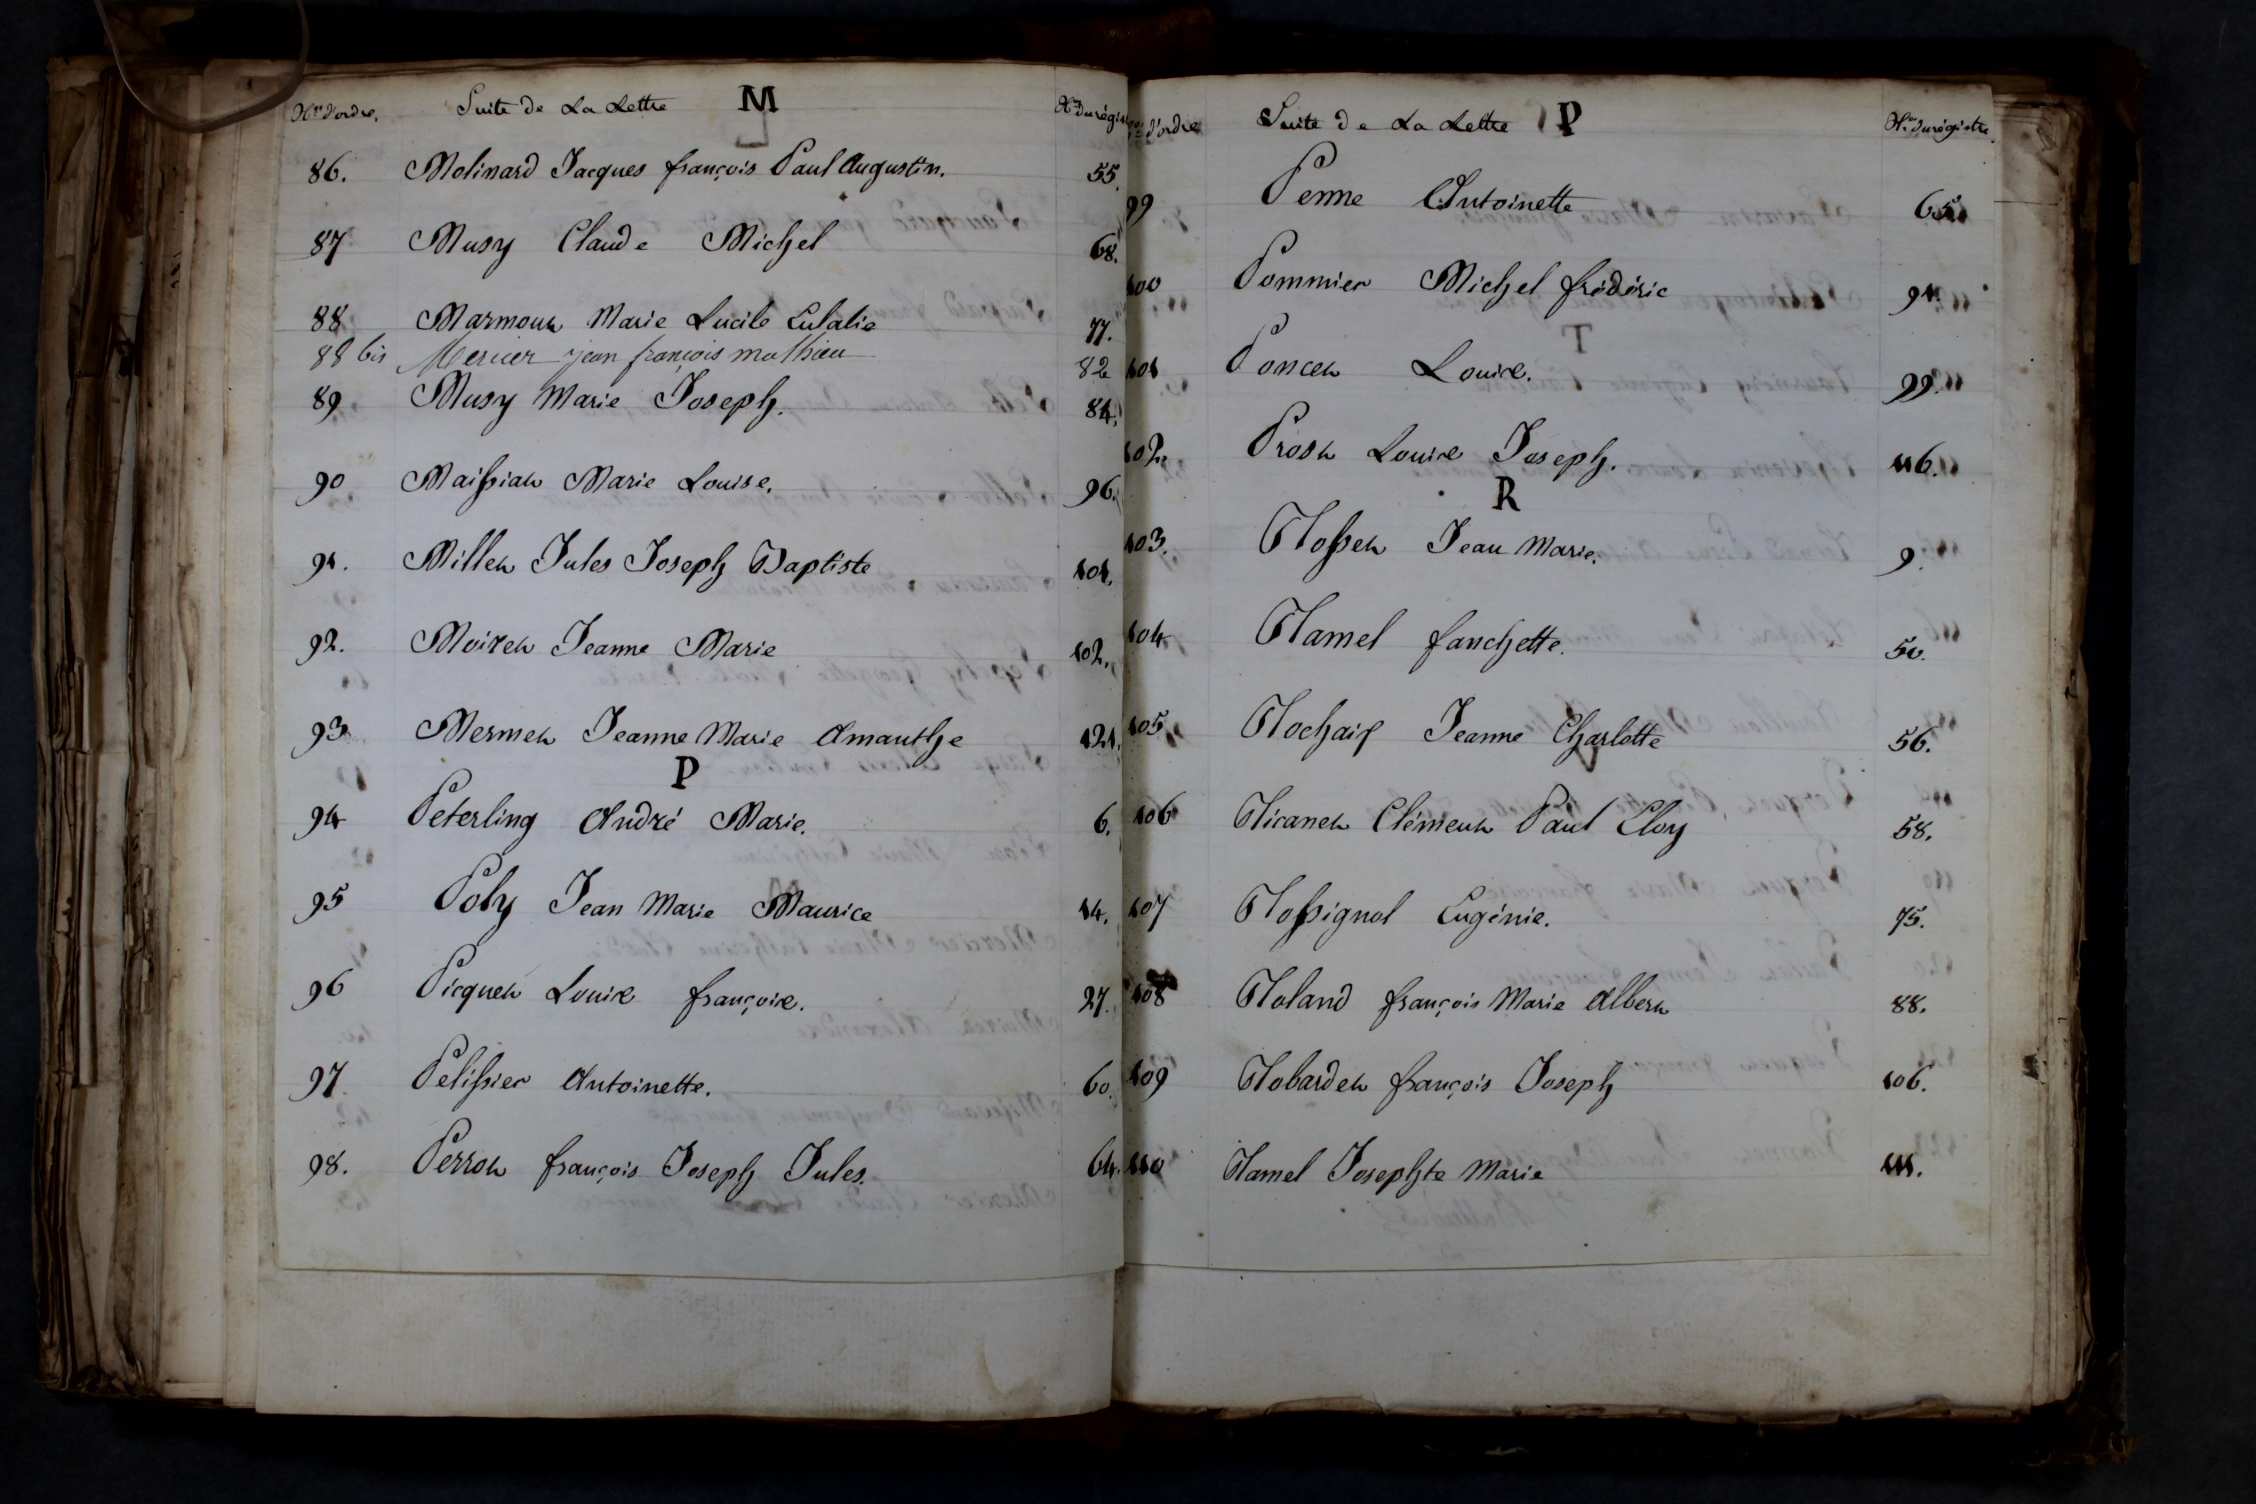 Nos d'ordre. Suite de La Lettre M Nos du régis
86. Molinard Jacques françois Paul Augustin. 55.
87 Musy Claude Michel 68.
88 Marmout Marie Lucile Eulalie 77.
88 bis Mercier jean françois mathieu 82
89 Musy Marie Joseph. 84.
90 Maissiat Marie Louise. 96.
91. Millet Jules Joseph Baptiste 101.
92. Moiret Jeanne Marie 102.
93 Mermet Jeanne Marie Amanthe 121.
P
94 Peterling André Marie. 6.
95 Poly Jean Marie Maurice 14.
96 Picquet Louise françoise. 27.
97 Pelissier Antoinette. 60.
98. Perrot françois Joseph Jules. 64.
Nos d'ordre Suite de La Lettre P Nos du régistre.
99 Penne Antoinette 65.
100 Pommier Michel frédéric 91.
101 Poncet Louise. 99.
102. Prost Louise Joseph. 116.
R
103. Rosset Jean Marie. 9.
104 Ramel fanchette. 50.
105 Rochaix Jeanne Charlotte 56.
106 Ricanet Clément Paul Eloy 58.
107 Rossignol Eugénie. 75.
108 Roland françois Marie Albert 88.
109 Robardet françois Joseph 106.
110 Ramel Josephte Marie 111.